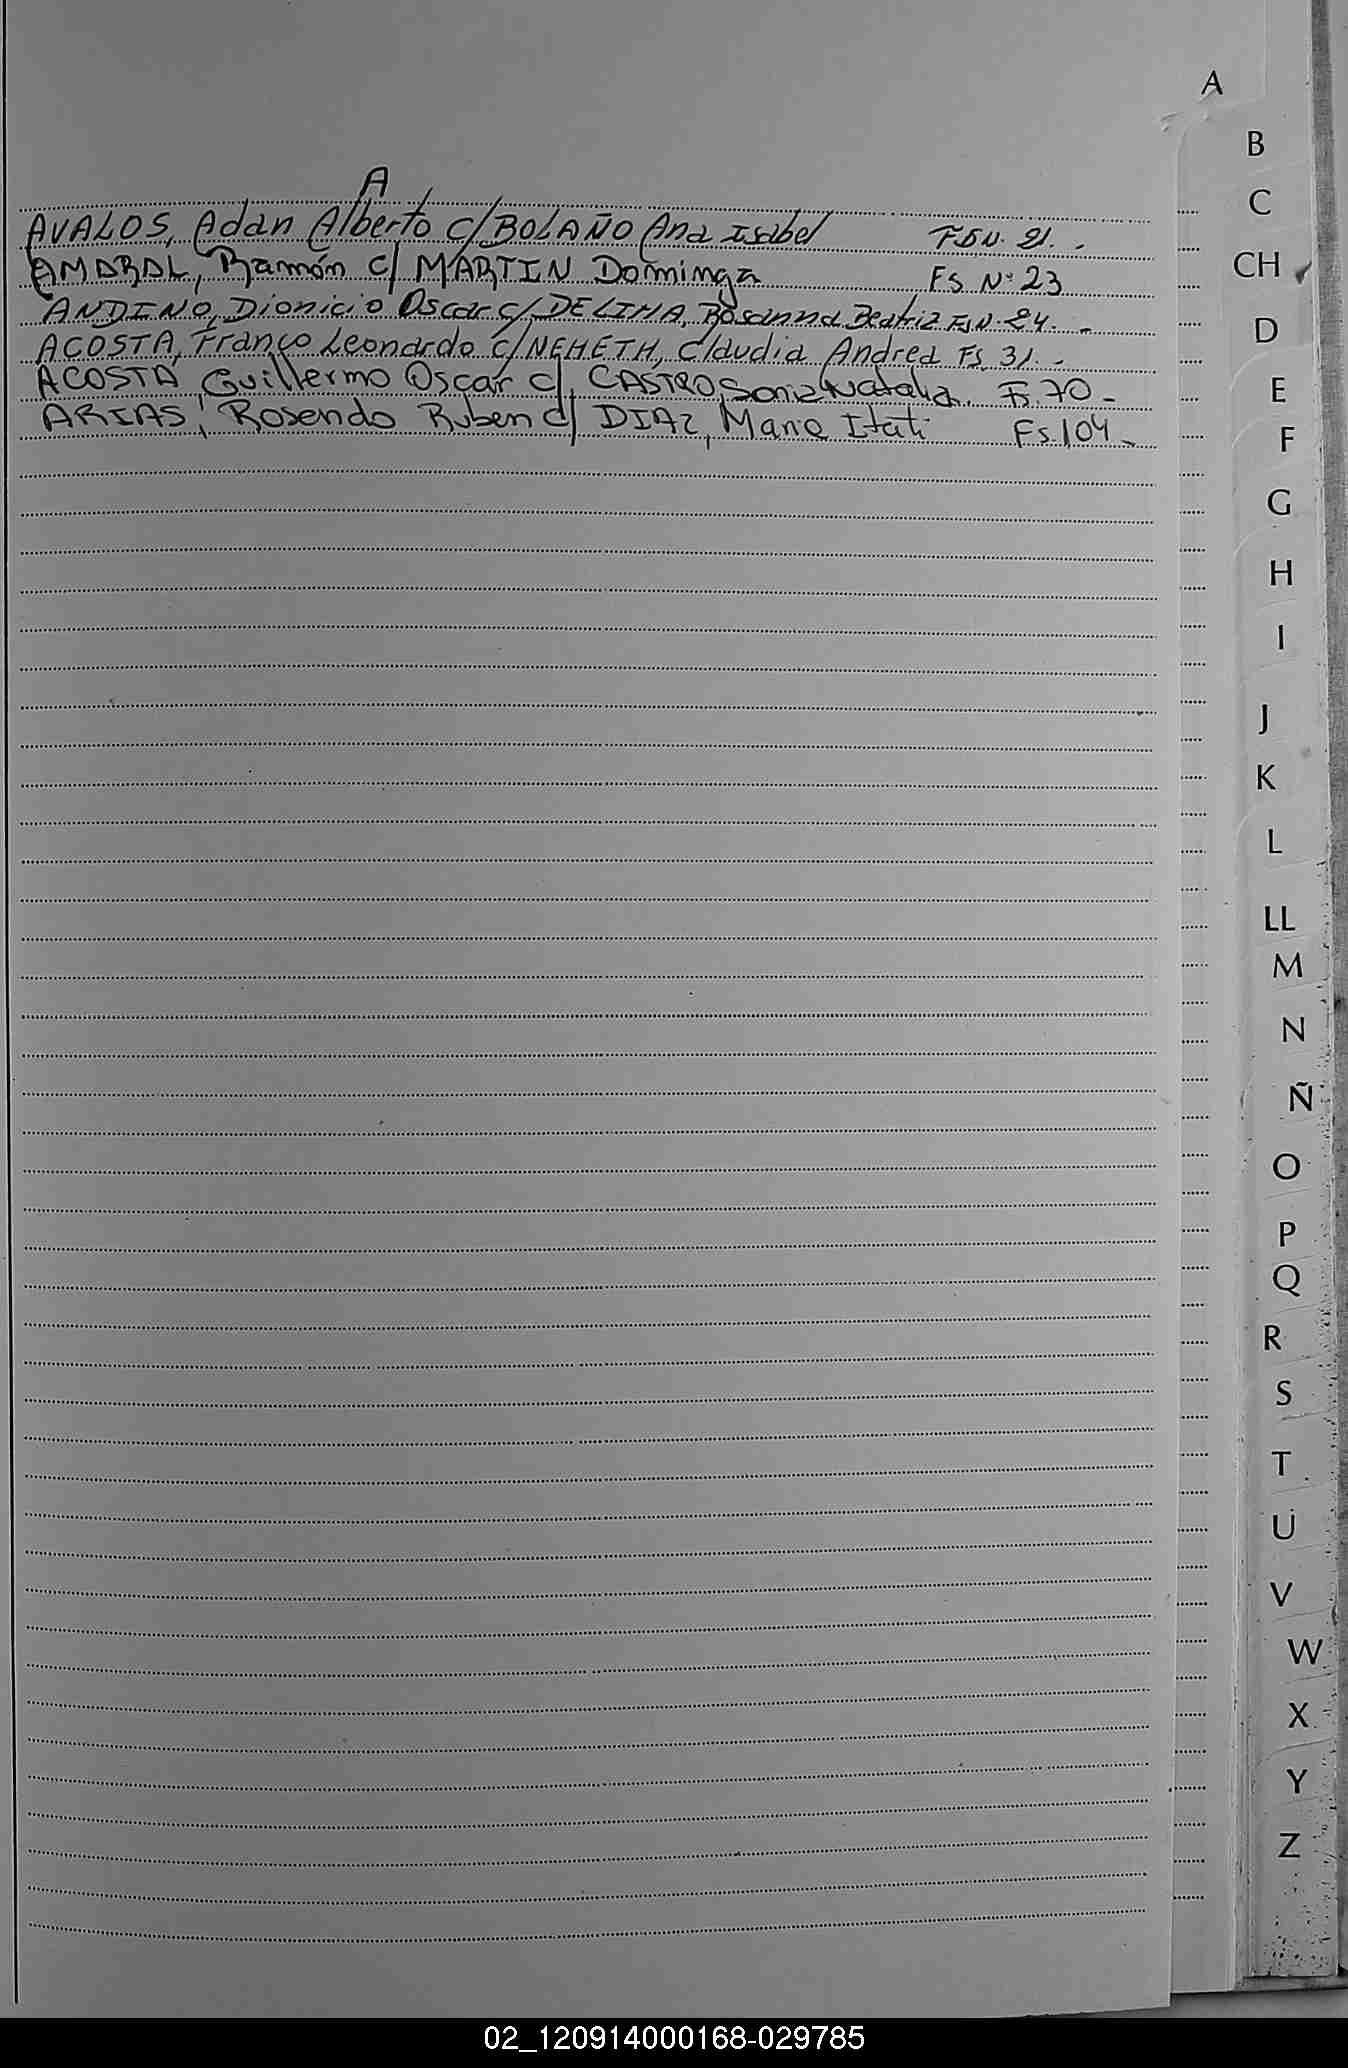 A
AVALOS, Adan Alberto c/ BOLAÑO Ana Isabel Fs N. 21.
AMARAL, Ramón c/ MARTIN Dominga Fs Nº 23
ANDINO, Dionicio Oscar c/ DELIMA, Rosanna Beatriz Fs N. 24. -
ACOSTA, Franco Leonardo c/ NEMETH, Claudia Andrea Fs. 31. -
ACOSTA, Guillermo Oscar c/ CASTRO, Sonia Natalia. Fs. 70 -
ARIAS, Rosendo Ruben c/ DIAZ, Maria Itati Fs. 104 -
A
B
C
CH
D
E
F
G
H
I
J
K
L
LL
M
N
Ñ
O
P
Q
R
S
T
U
V
W
X
Y
Z
02_120914000168-029785